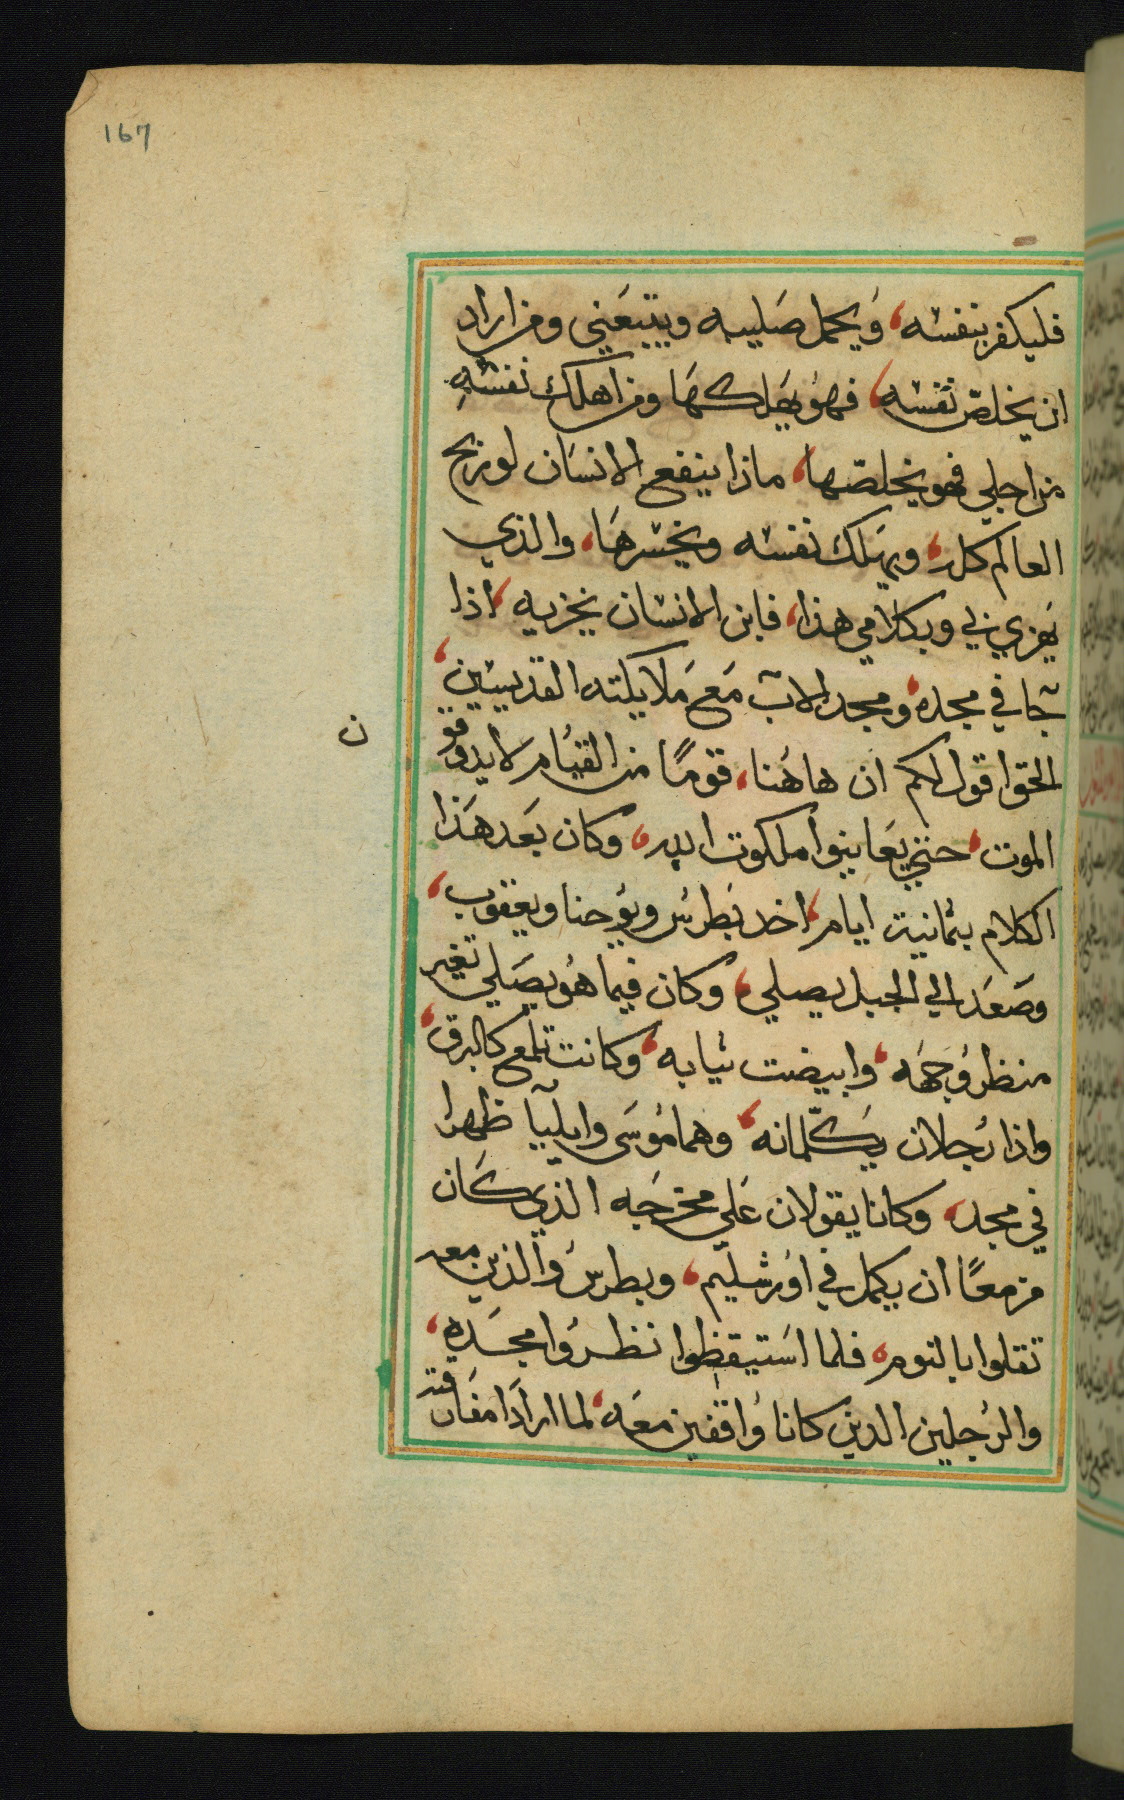 167
فليكفر بنفسه، وَيحمل صَليبه ويتبعَني ومن اراد
ان يخلصّ نفسَه، فهوُ يهَلكهَا ومن اهلك نفسَهِ
من اجلي فهو يخلصّها، ماذا ينفع الانسَان لو ربح
العالم كله، ويهَلك نفسَه ويخسَرهَا، والذي
يَهزي بي وبكلامي هذا، فابن الانسَان يخزيه، اذا
جَا في مجده، ومجد الابَ مَع مَلايكته القديسَين،
الحق اقول لكم ان هاهُنا، قومًا من القيُام لا يدوقو
ن
الموت، حتي يعَاينوا ملكوت الله، وكان بعَد هَذا
الكلام بثمانية ايام، اخد بَطرسُ ويوُحنا ويعقوب،
وصَعَد الي الجبل يصلي، وكان فيما هوُ يصَلي تغير
منظر وُجهَه، وابيضت ثيابه، وكانت تلمع كالبرق،
واذا رُجلان يكَلّمانه، وهما موُسَى وايليَا ظهرا
في مجد، وكانا يقولان عَلي مخرجَه الذي كَان
مزمعًا ان يكمل في اوُرشليم، وبطرسُ والذين معه
تقلوا بالنوم، فلما اسَتيقظوا نظرَوا مجسَده،
والرُجلين الدين كانا وُاقفين معَه، لما ارادَا مفارقته